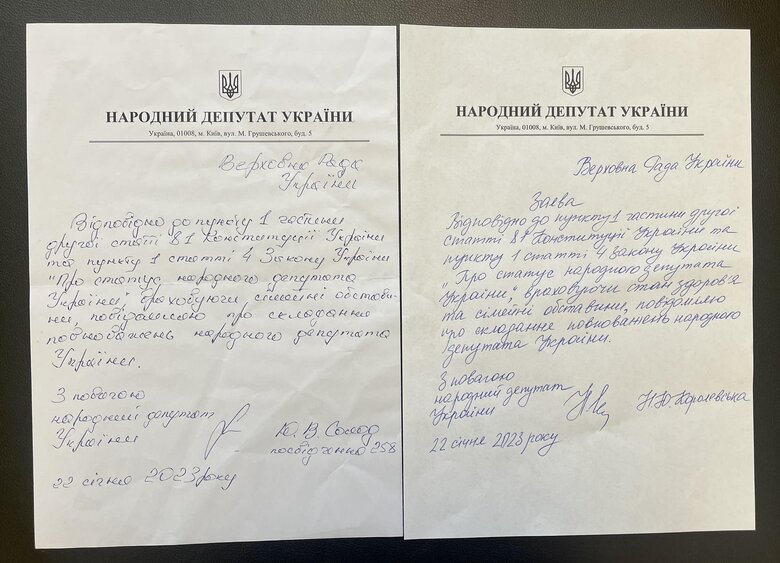 НАРОДНИЙ ДЕПУТАТ УКРАЇНИ
Україна, 01008, м. Київ, вул. М. Грушевського, буд. 5
Верховна Рада
України
Відповідно до пункту 1 частини
другої статі 81 Конституції України
та пункту 1 статті 4 Закону України
"Про статус народного депутата
України", враховуючи сімейні обстави-
ни, повідомляю про складання
повноважень народного депутата
України.
З повагою
народний депутат
України
Ю. В. Солод
посвідчення 258
22 січня 2023 року
НАРОДНИЙ ДЕПУТАТ УКРАЇНИ
Україна, 01008, м. Київ, вул. М. Грушевського, буд. 5
Верховна Рада України
Заява
Відповідно до пункту 1 частини другої
статті 81 Конституціі України та
пункту 1 статті 4 Закону України
"Про статус народного депутата
України", враховуючи стан здоров'я
та сімейні обставини, повідомляю
про складання повноважень народного
депутата України.
З повагою
народний депутат
України
Н.Ю. Королевська
22 січня 2023 року